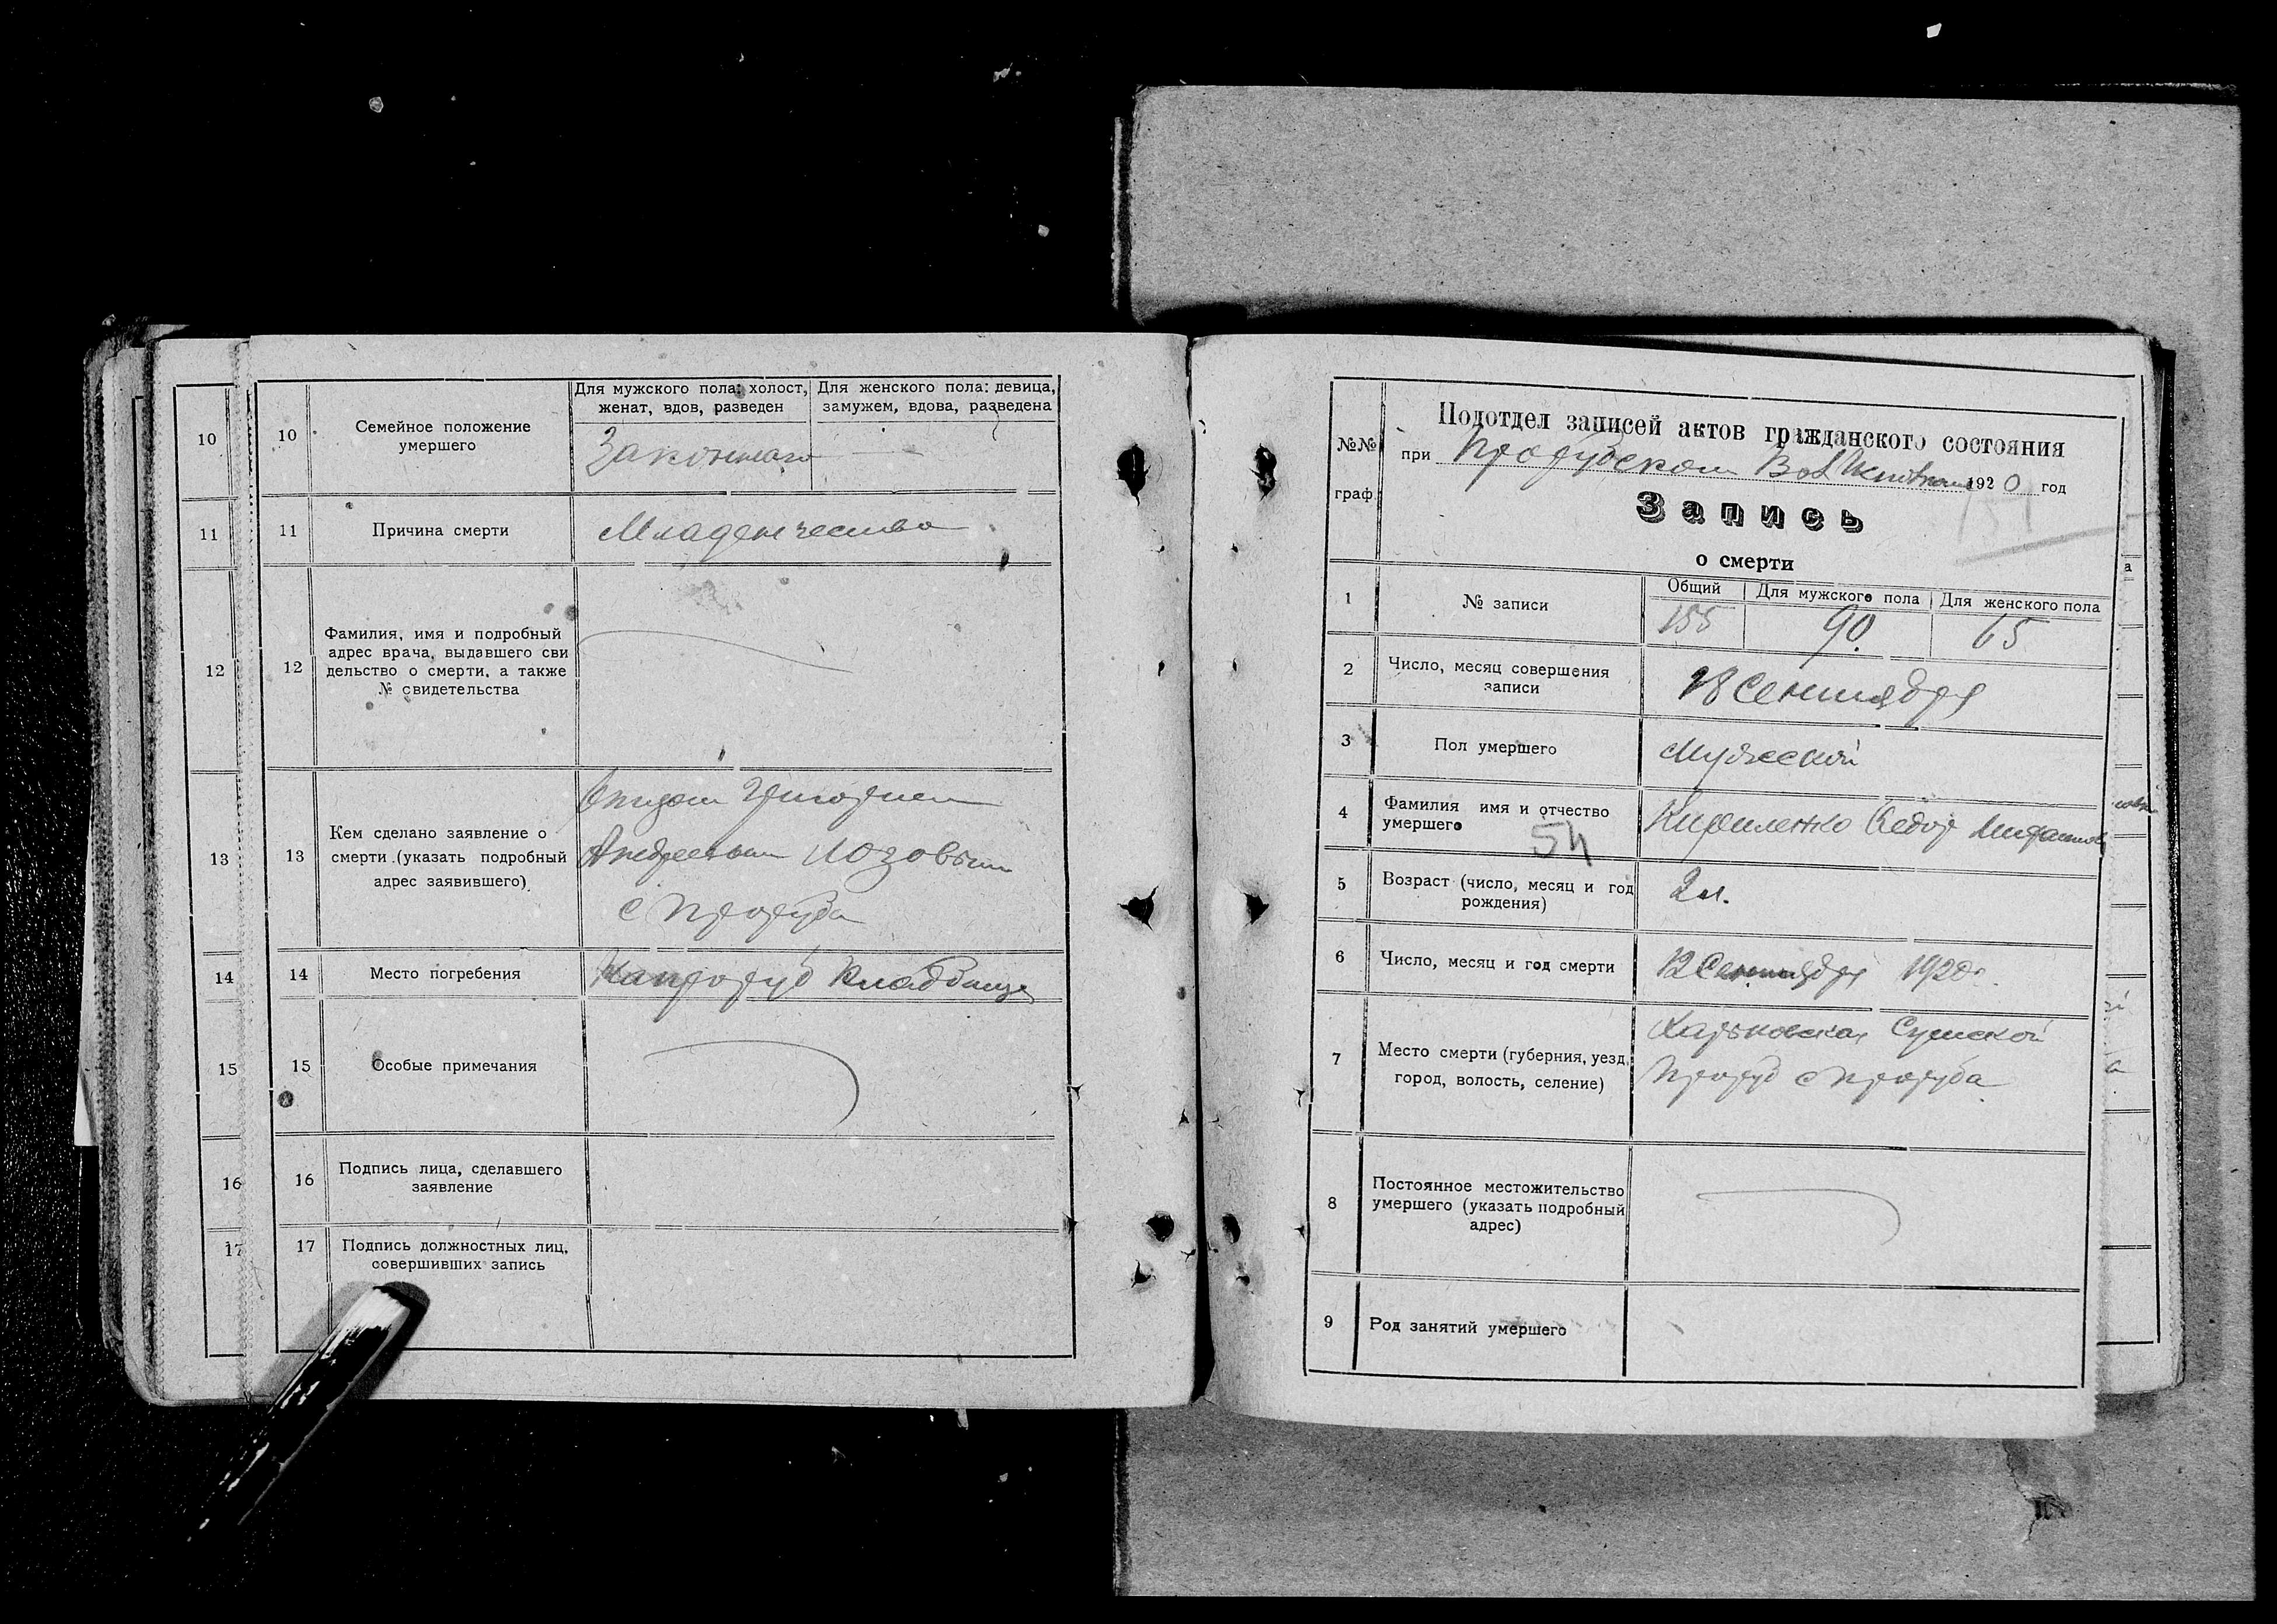 10
10
Семейное положение
умершего
Для мужского пола: холост,
женат, вдов, разведен
Для женского пола: девица,
замужем, вдова, разведена
Законнаго
11
11
Причина смерти
Младенчество
12
12
Фамилия, имя и подробный
адрес врача, выдавшего сви
дельство о смерти, а также
№ свидетельства
13
13
Кем сделано заявление о
смерти (указать подробный
адрес заявившего)
Григорием
Андреевым Лозовым
с Проруба
14
14
Место погребения
Кладбище
15
15
Особые примечания
16
16
Подпись лица, сделавшего
заявление
17
17
Подпись должностных лиц,
совершивших запись
№№
граф.
Подотдел записей актов гражданского состояния
при Прорубском Вол 1920 год
Запись
о смерти
1
№ записи
Общий
Для мужского пола
Для женского пола
155
90.
65
2
Число, месяц совершения
записи
18 Сентября
3
Пол умершего
Мужеской
4
Фамилия имя и отчество
умершего
54
Кириленко Федор
5
Возраст (число, месяц и год
рождения)
2 м.
6
Число, месяц и год смерти
12 Сентября 1920г.
7
Место смерти (губерния, уезд,
город, волость, селение)
Харьковская Сумской
Проруб с Проруба
8
Постоянное местожительство
умершего (указать подробный
адрес)
9
Род занятий умершего